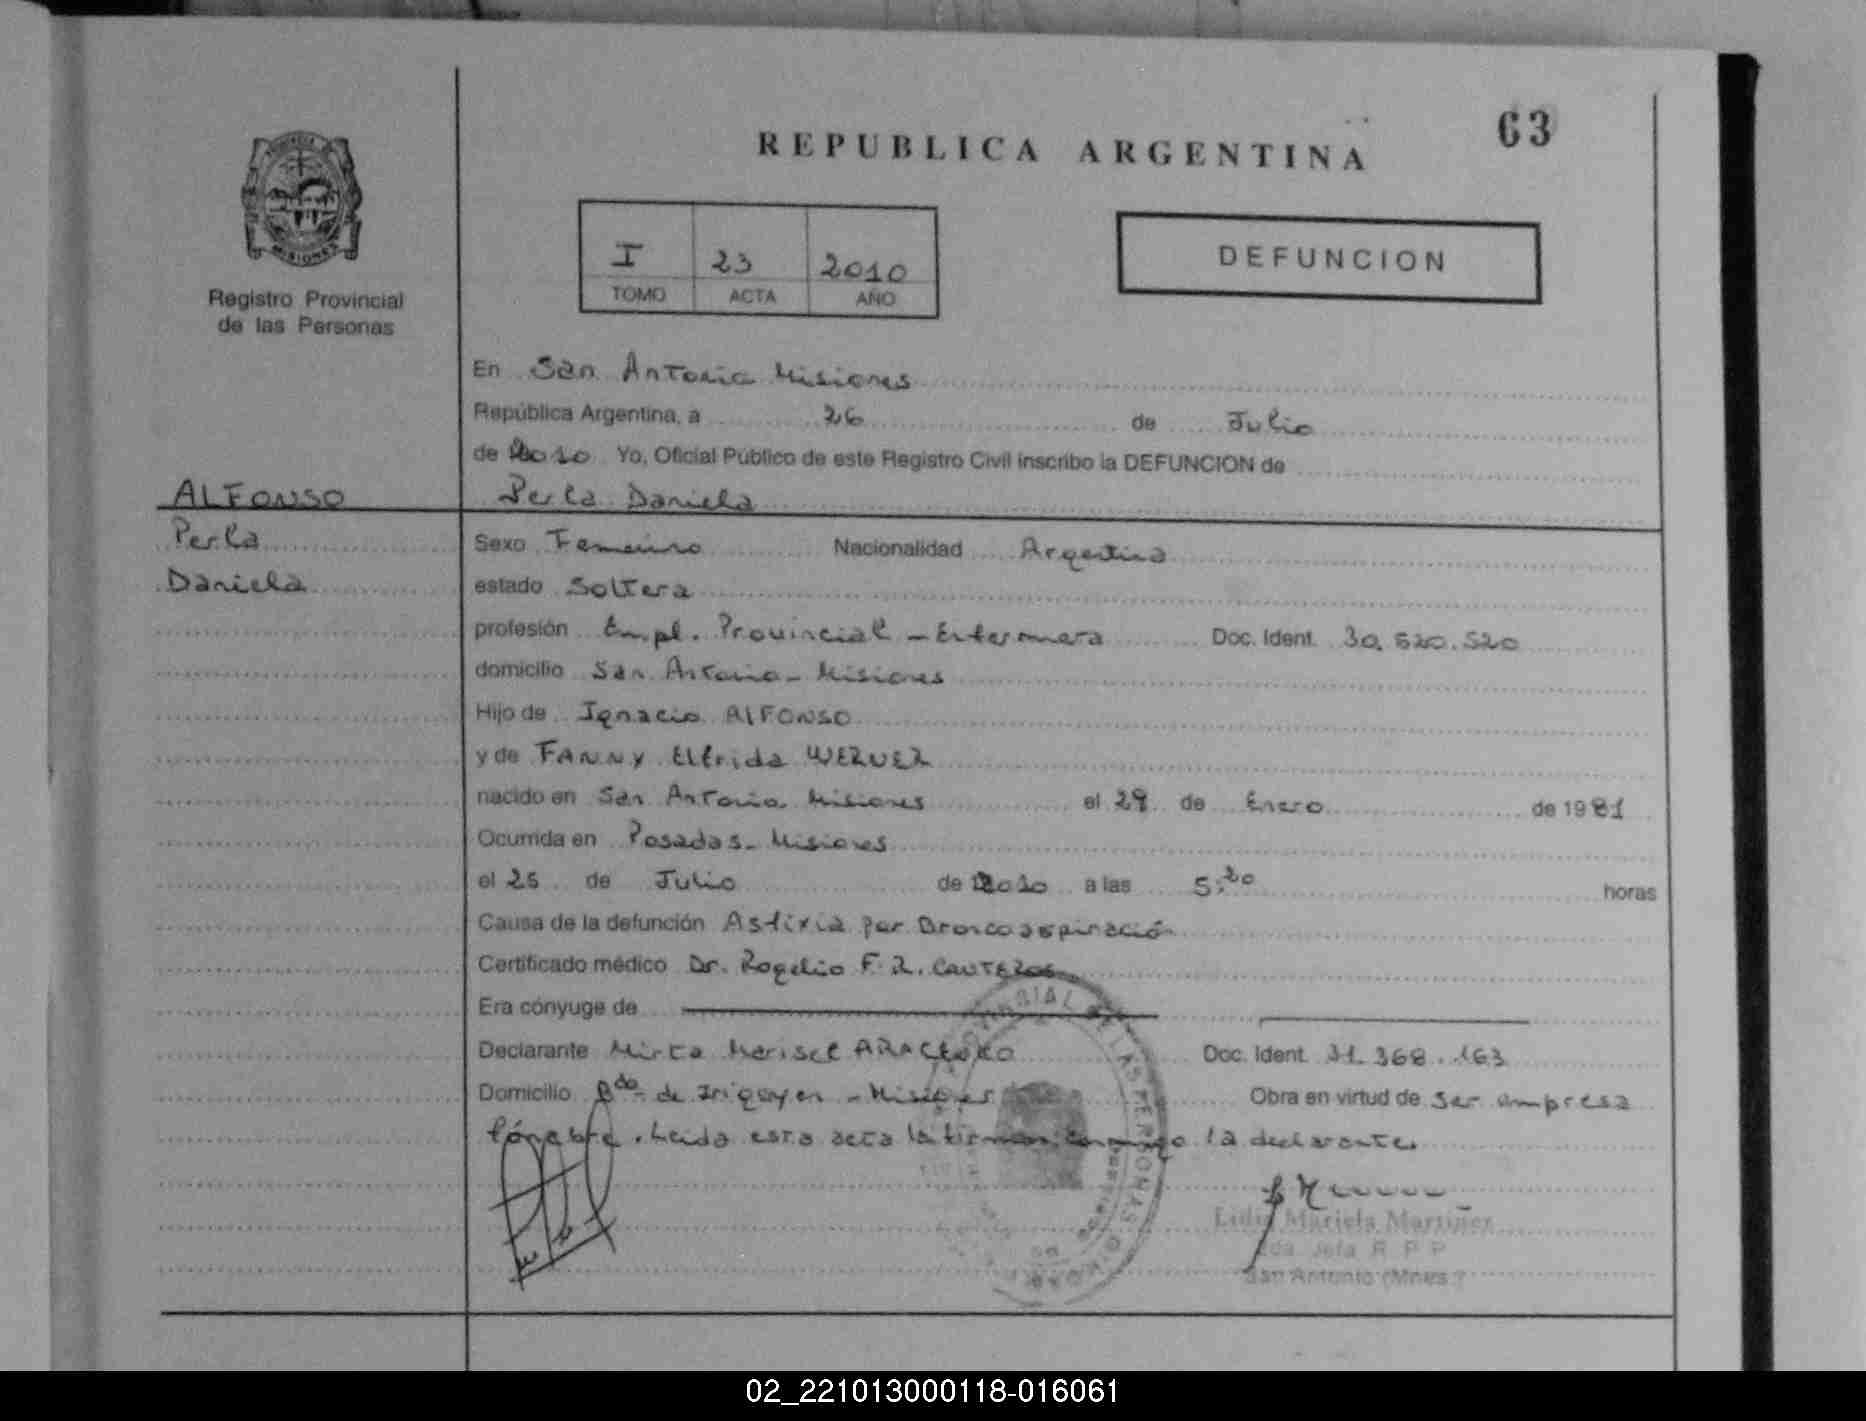 63
REPUBLICA ARGENTINA
MISIONES
I 23 2010
TOMO ACTA AÑO
DEFUNCION
Registro Provincial
de las Personas
En San Antonio Misiones
República Argentina, a 26 de Julio
de 2010 Yo, Oficial Público de este Registro Civil inscribo la DEFUNCION de
ALFONSO Perla Daniela
Perla
Daniela
Sexo Femenino Nacionalidad Argentina
estado Soltera
profesión Empl. Provincial - Enfermera Doc. Ident. 30.520.520
domicilio San Antonio - Misiones
Hijo de Ignacio ALFONSO
y de FANNY Elfrida
nacido en San Antonio Misiones el 29 de Enero de 1981
Ocurrida en Posadas - Misiones
el 25 de Julio de 2010 a las 5:20 horas
Causa de la defunción Asfixia por Broncoaspiración
Certificado médico Dr. Rogelio F. R.
Era cónyuge de
Declarante Mirta Doc. Ident. 31.368.163
Domicilio Bdo de Irigoyen - Misiones Obra en virtud de ser empresa
fúnebre. Leida esta acta la firman conmigo la declarante.
Lidia Mariela Martinez
Jefa R. P. P.
San Antonio (Mnes.)
02_221013000118-016061